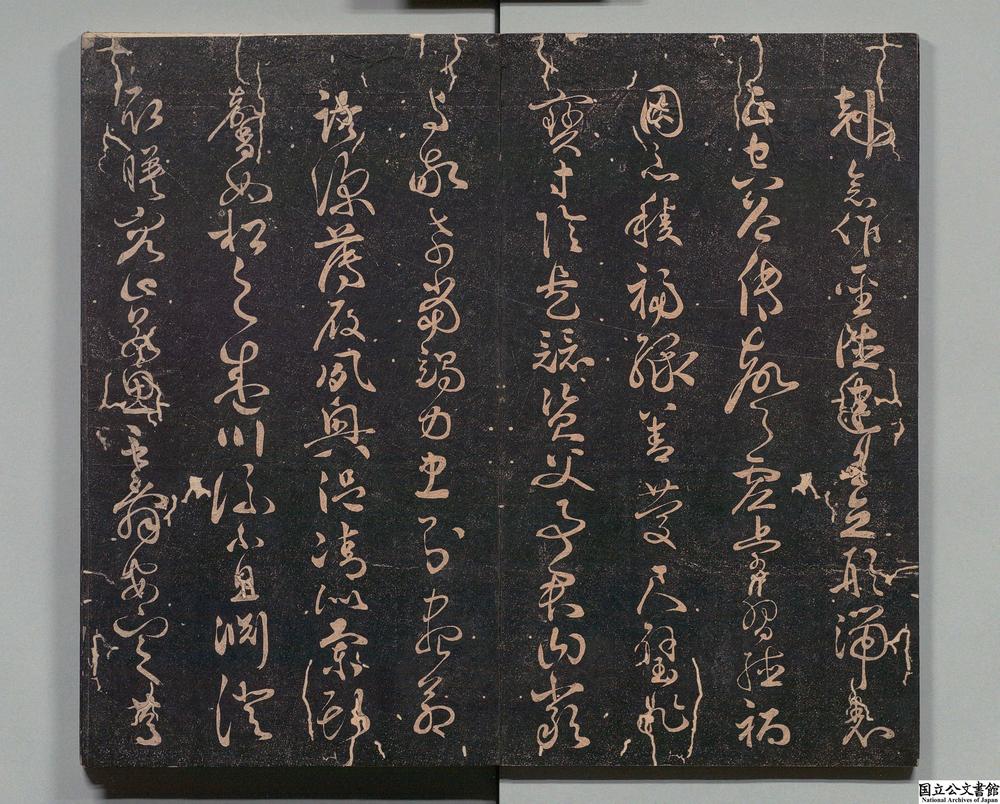 剋念作聖德建名立形端表
正空谷傳聲虛堂習聽禍
因惡積福緣善慶尺璧非
寶寸陰是競資父事君曰嚴
與敬孝當竭力忠則盡命
臨深薄履夙興溫清似蘭斯
馨如松之盛川流不息淵澄
取映容止若思言辭安定篤
国立公文書館
National Archives of Japan